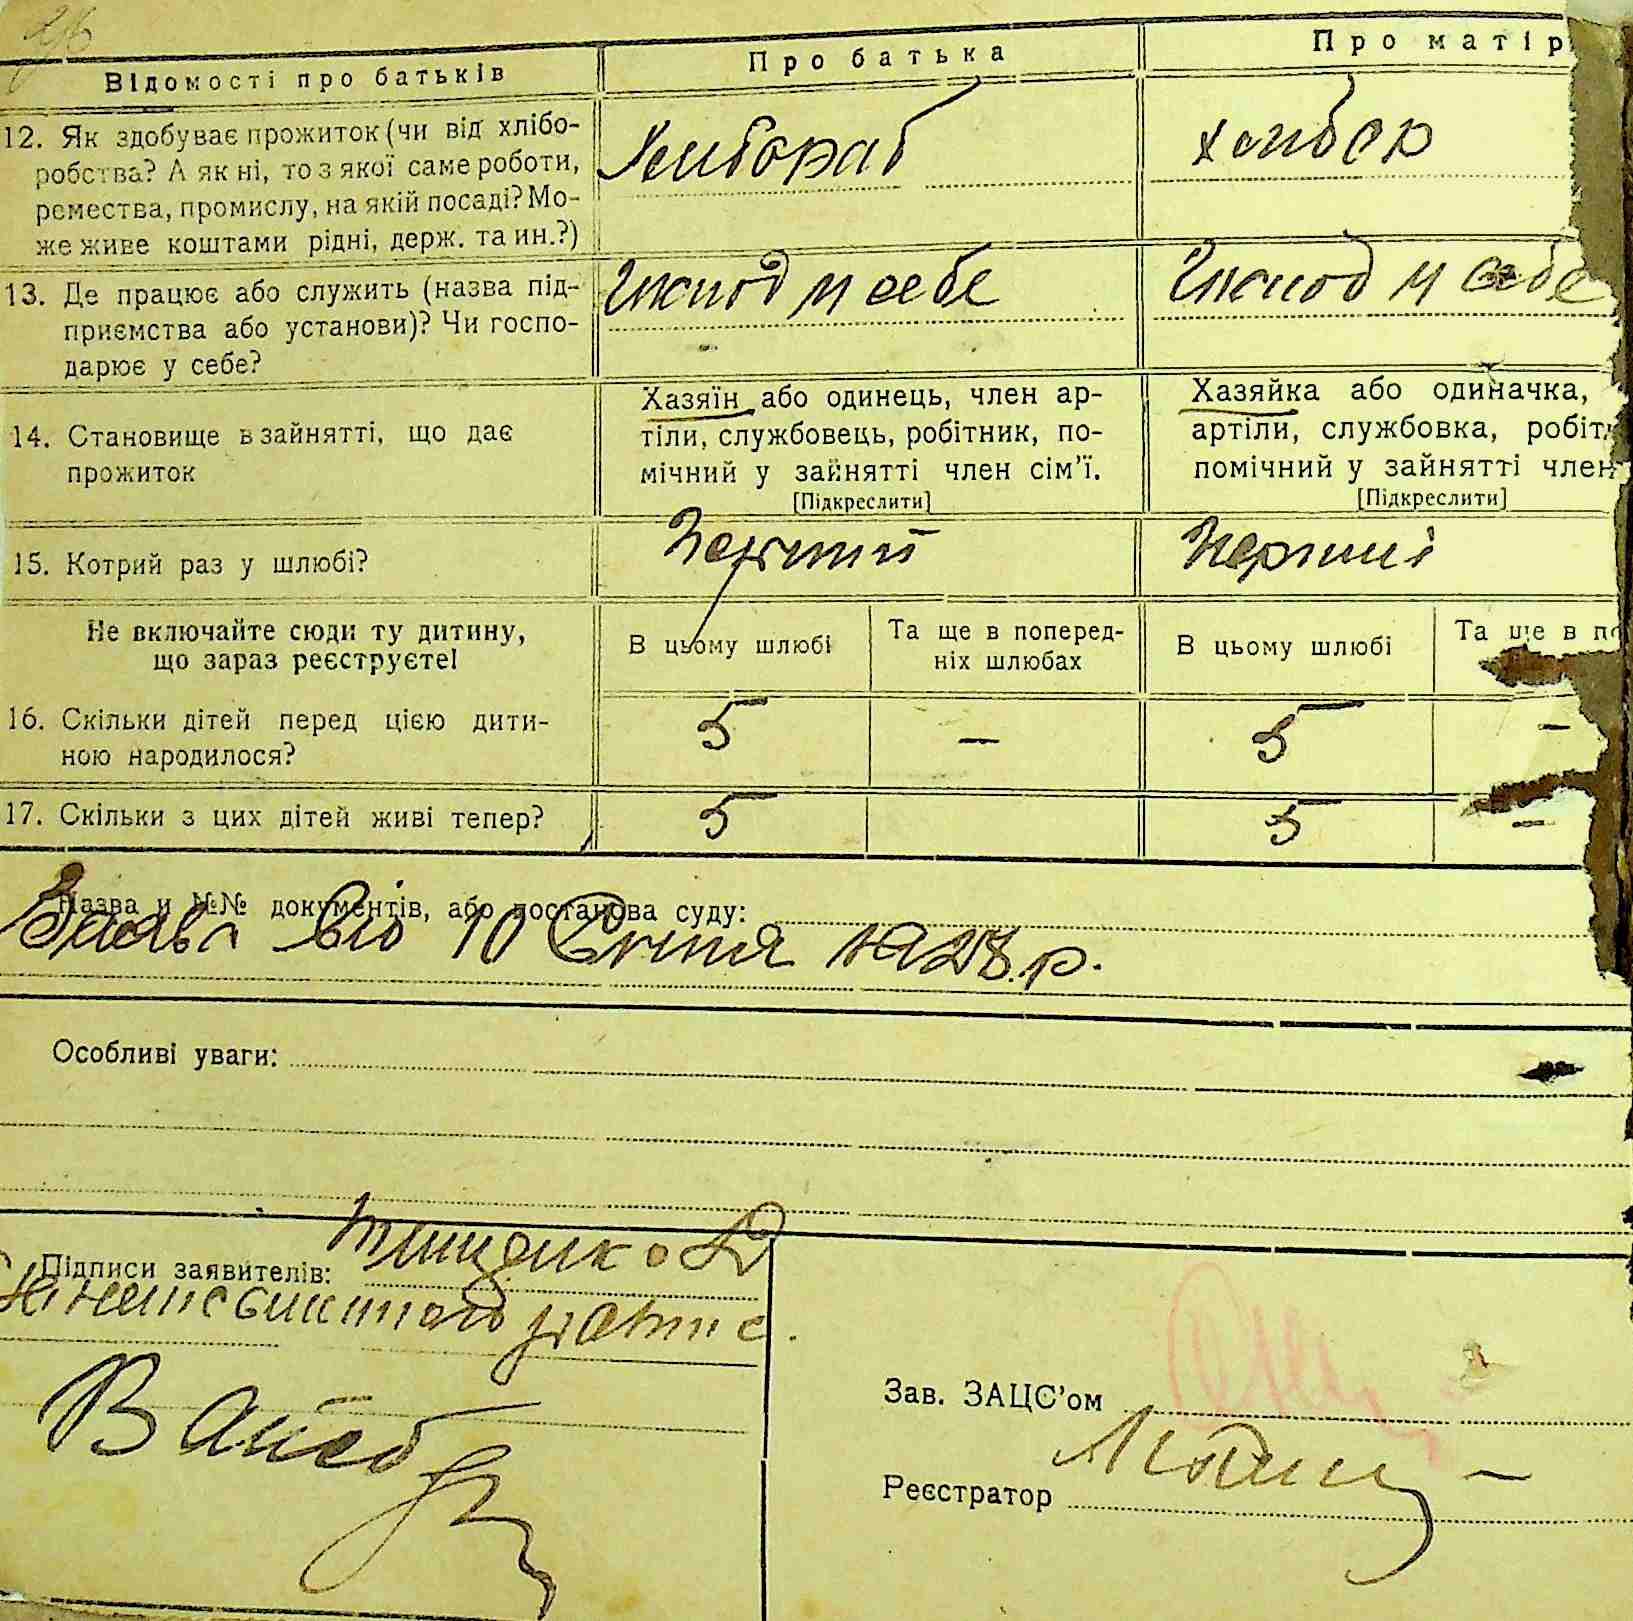 Відомості про батьків
Про батька
Про матір
12. Як здобуває прожиток (чи від хлібо-
робства? А як ні, то з якої саме роботи,
ремества, промислу, на якій посаді? Мо-
же живе коштами рідні, держ. та ин.?)
Хлибораб
хлибор
13. Де працює або служить (назва під-
приємства або установи)? Чи госпо-
дарює у себе?
у себе
у себе
14. Становище в зайнятті, що дає
прожиток
Хазяїн або одинець, член ар-
тіли, службовець, робітник, по-
мічний у зайнятті член сім'ї.
[Підкреслити]
Хазяйка або одиначка,
артіли, службовка, робіт
помічний у зайнятті член
[Підкреслити]
15. Котрий раз у шлюбі?
Перший
Перший
Не включайте сюди ту дитину,
що зараз реєструєте!
В цьому шлюбі
Та ще в поперед-
ніх шлюбах
В цьому шлюбі
Та ще в по
16. Скільки дітей перед цією дити-
ною народилося?
5
—
5
—
17. Скільки з цих дітей живі тепер?
5
5
—
Назва и №№ документів, або постанова суду:
Заява від 10 Січня 1928 р.
Особливі уваги:
Підписи заявителів:
Зав. ЗАЦС'ом
Реєстратор